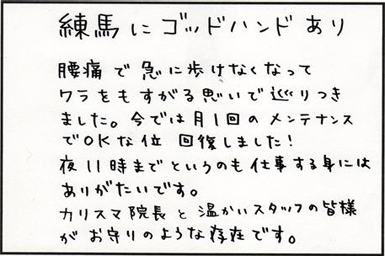 練馬にゴッドハンドあり
腰痛で急に歩けなくなって
ワラをもすがる思いで巡りつき
ました。今では月1回のメンテナンス
でOKな位 回復しました!
夜11時までというのも仕事する身には
ありがたいです。
カリスマ院長と温かいスタッフの皆様
がお守りのような存在です。